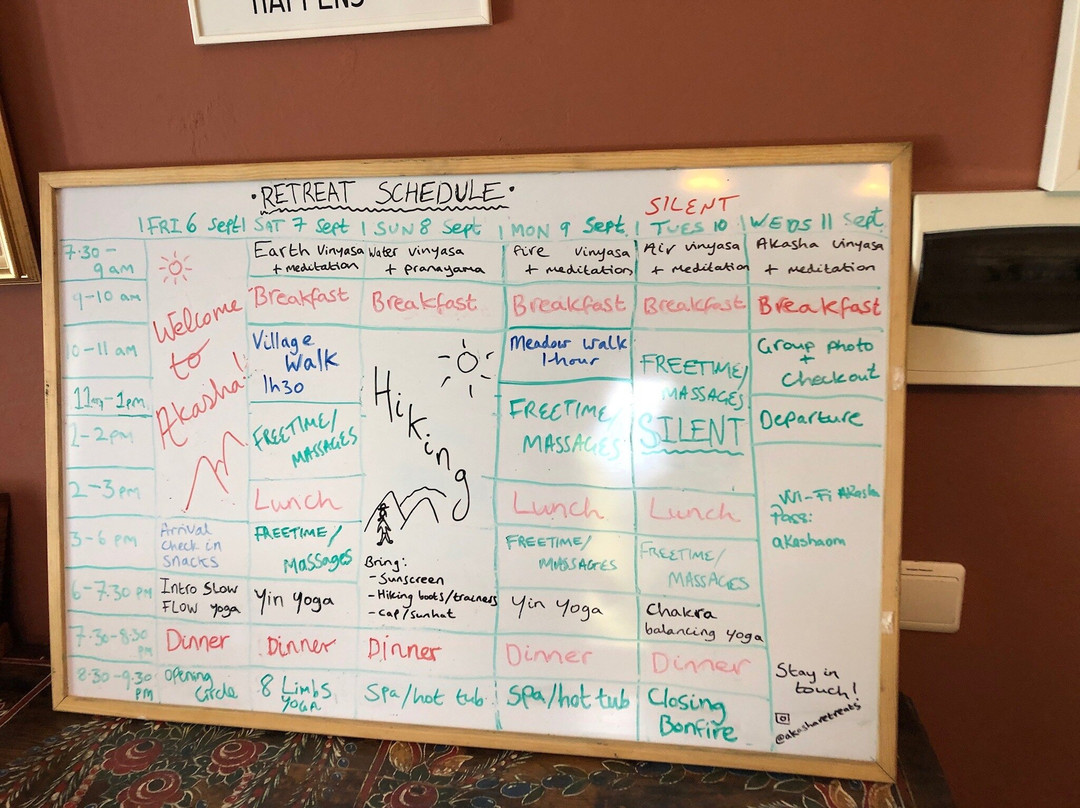 HAPPENS
• RETREAT SCHEDULE •
SILENT
| FRI 6 Sept | SAT 7 Sept | SUN 8 Sept | MON 9 Sept | TUES 10 | WEDS 11 Sept
7.30 - 9 am
Earth Vinyasa
+ meditation
Water vinyasa
+ pranayama
Fire vinyasa
+ meditation
Air vinyasa
+ meditation
Akasha vinyasa
+ meditation
9-10 am
Welcome
to
Akasha!
Breakfast
Breakfast
Breakfast
Breakfast
Breakfast
10-11 am
Village
Walk
1h30
Hiking
Meadow walk
1-hour
FREETIME/
MASSAGES
SILENT
Group photo
+
Checkout
11am-1pm
1-2pm
FREETIME/
MASSAGES
FREETIME/
MASSAGES
Departure
2-3pm
Lunch
Lunch
Lunch
Wi-Fi Akasha
Pass:
akashaom
3-6 pm
Arrival
Check in
Snacks
FREETIME/
Massages
Bring:
- Sunscreen
- Hiking boots/trainers
- cap/sunhat
FREETIME/
MASSAGES
FREETIME/
MASSAGES
6-7.30 PM
Intro Slow
FLOW yoga
Yin Yoga
Yin Yoga
Chakra
balancing yoga
7.30-8.30
PM
Dinner
Dinner
Dinner
Dinner
Dinner
8.30-9.30
PM
Opening
Circle
8 Limbs
YOGA
Spa/hot tub
Spa/hot tub
Closing
Bonfire
Stay in
touch!
@akasharetreats